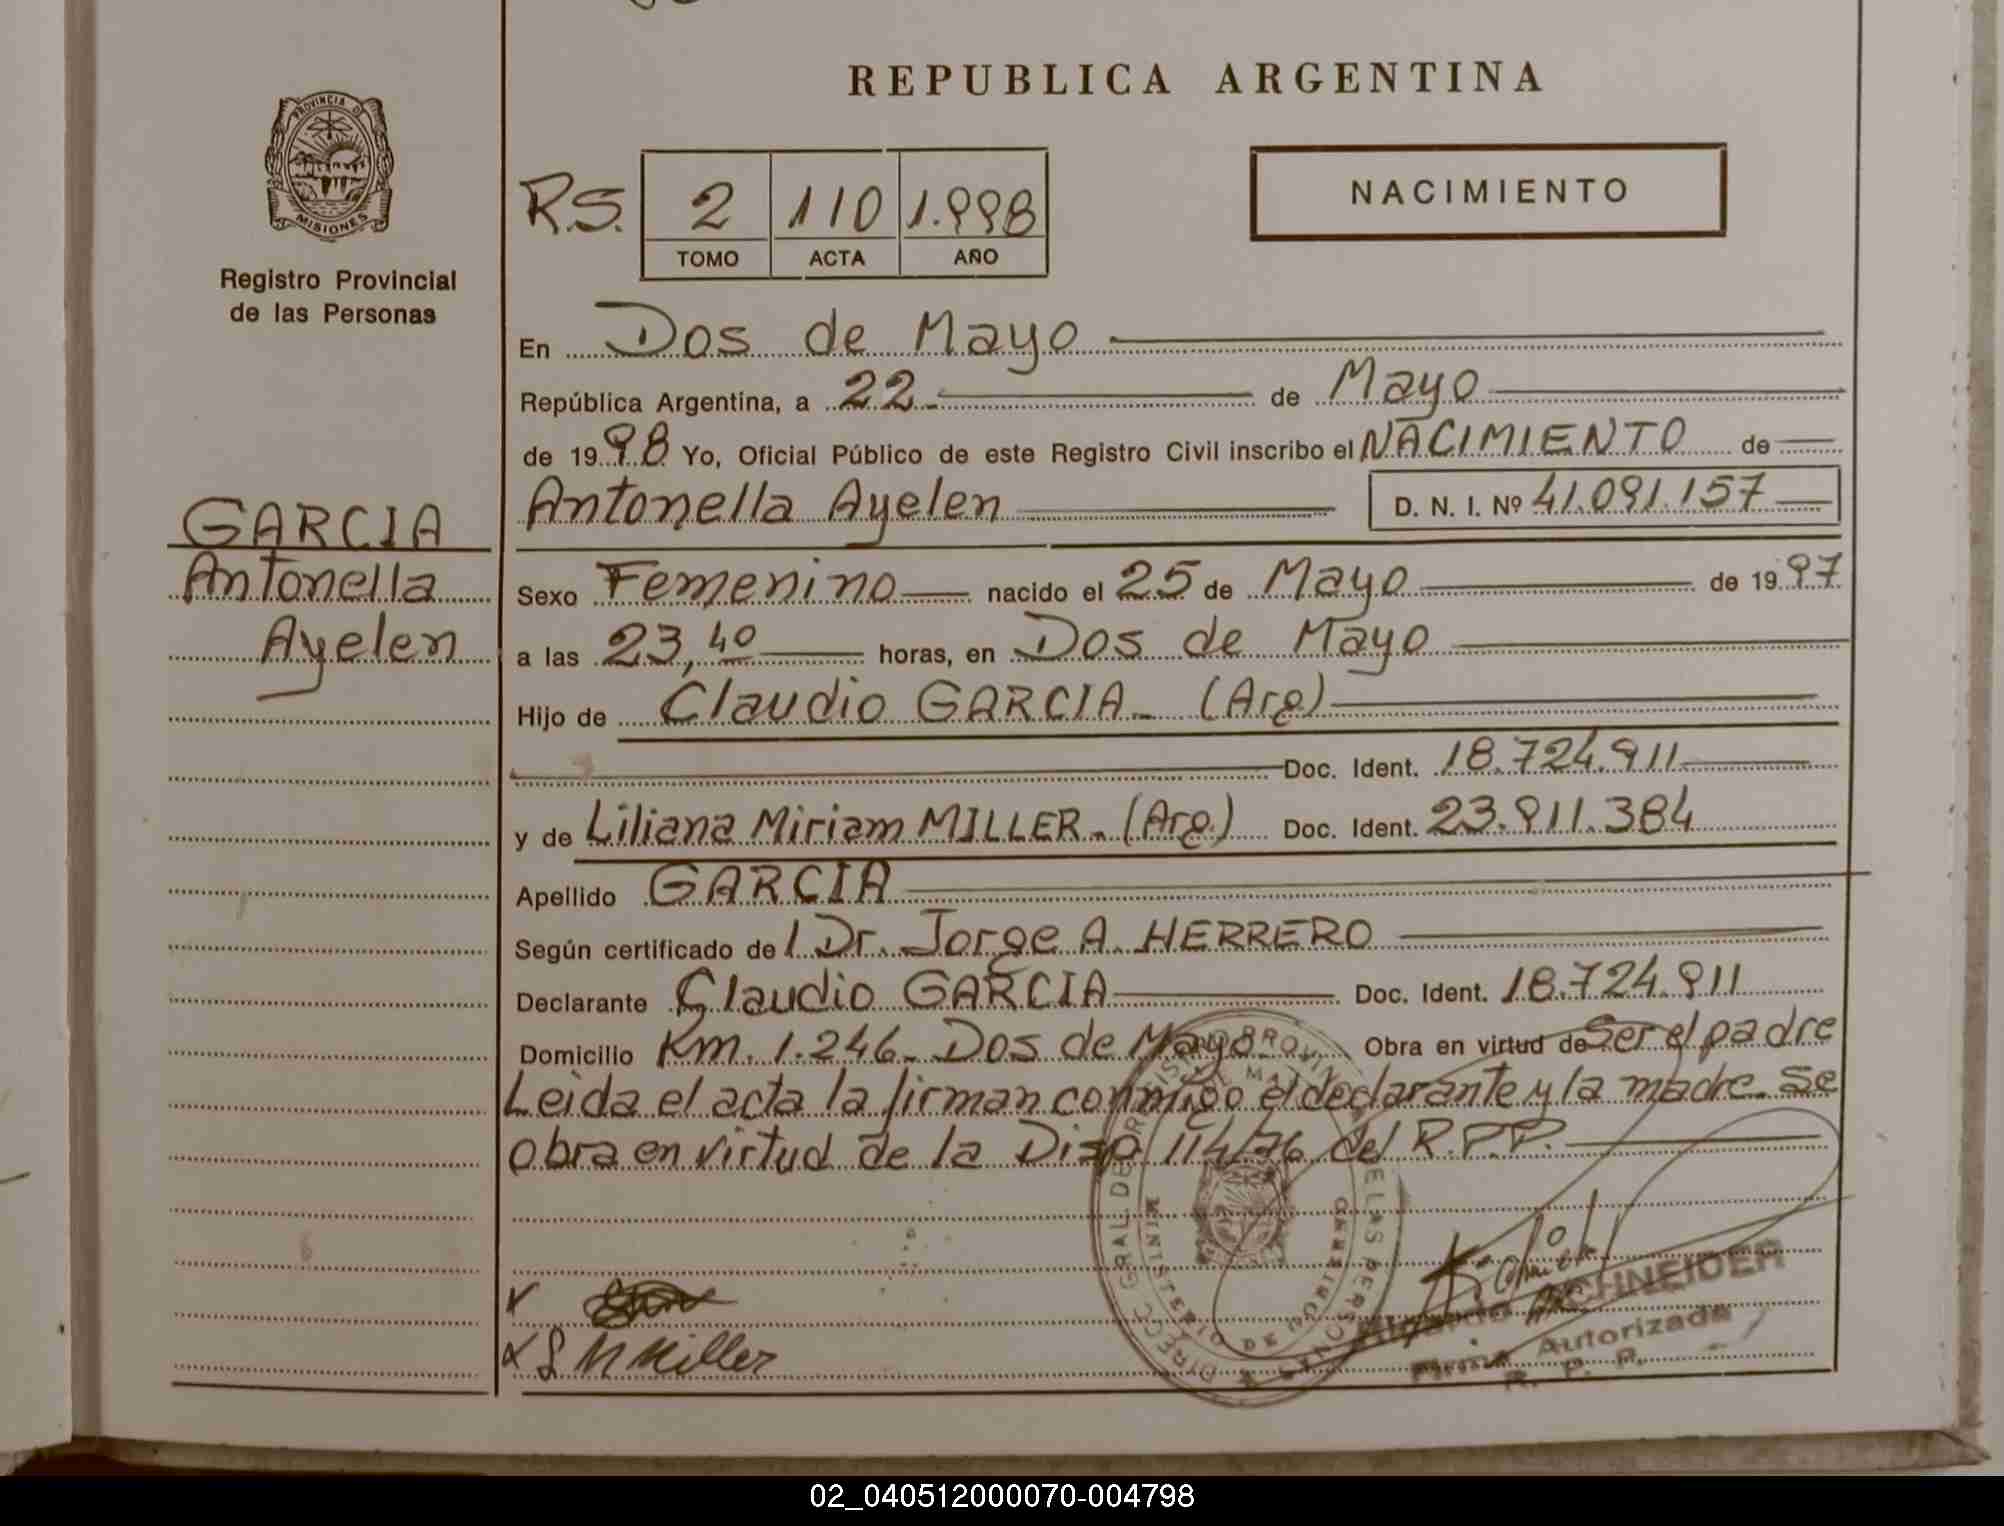 REPUBLICA ARGENTINA
PROVINCIA DE
MISIONES
Registro Provincial
de las Personas
R.S. 2 110 1.998
TOMO ACTA AÑO
NACIMIENTO
En Dos de Mayo
República Argentina, a 22 de Mayo
de 1998 Yo, Oficial Público de este Registro Civil inscribo el NACIMIENTO de
Antonella Ayelen D. N. I. Nº 41.091.157
GARCIA
Antonella
Ayelen
Sexo Femenino nacido el 25 de Mayo de 1997
a las 23,40 horas, en Dos de Mayo
Hijo de Claudio GARCIA (Arg)
Doc. Ident. 18.724.911
y de Liliana Miriam MILLER. (Arg.) Doc. Ident. 23.911.384
Apellido GARCIA
Según certificado de l Dr. Jorge A. HERRERO
Declarante Claudio GARCIA Doc. Ident. 18.724.911
Domicilio Km. 1.246. Dos de Mayo Obra en virtud de Ser el padre
Leida el acta la firman conmigo el declarante y la madre. Se
obra en virtud de la Disp. 114/76 del R.P.P.
x
x L M Miller
SCHNEIDER
Firma Autorizada
R. P. P.
02_040512000070-004798